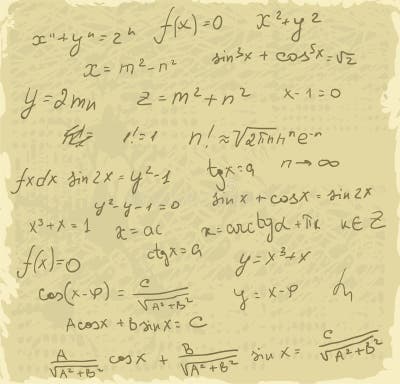 xⁿ + yⁿ = zⁿ f(x) = 0 x² + y²
x = m² - n² sin³x + cos⁵x = √2
y = 2mn z = m² + n² x - 1 = 0
1! = 1 n! ≈ √2πn nⁿe⁻ⁿ
tgx = a n → ∞
fxdx sin2x = y² - 1
y² - y - 1 = 0 sinx + cosx = sin2x
x³ + x = 1 x = ac x = arcctgα + πk k∈Z
f(x) = 0 ctgx = a y = x³ + x
cos(x - φ) = C/√A² + B² y = x - φ
Acosx + bsinx = C
A/√A² + B² cosx + B/√A² + B² sinx = C/√A² + B²